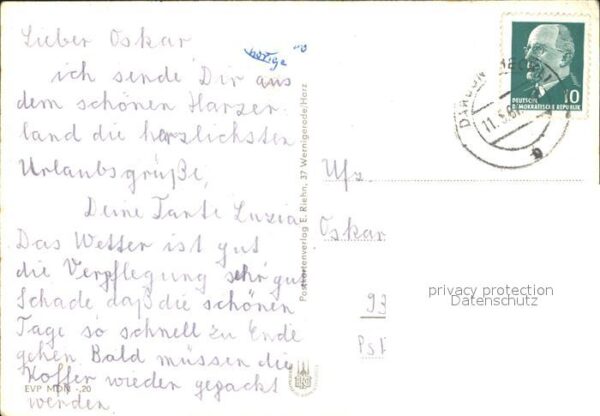 Lieber Oskar
ich sende Dir aus
dem schönen Harzer
land die herzlichsten
Urlaubsgrüße,
Deine Tante Luzia
Das Wetter ist gut
die Verpflegung sehr gut
Schade daß die schönen
Tage so schnell zu Ende
gehen. Bald müssen die
Koffer wieden gepackt
wenden.
EVP MDN -,20
Postkartenverlag E. Riehn, 37 Wernigerode/Harz
DEUTSCHE
DEMOKRATISCHE REPUBLIK
10
11. 5.
Ufz.
Oskar
privacy protection
Datenschutz
93
PSF